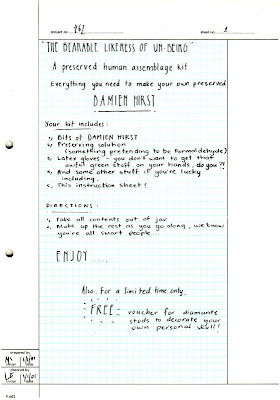 project no. 962 sheet no. 1
"THE BEARABLE LIKENESS OF UN-BEING"
A preserved human assemblage kit
Everything you need to make your own preserved
DAMIEN HIRST
Your kit includes:
1, Bits of DAMIEN HIRST
2, Preserving solution
(something pretending to be formaldehyde)
3, Latex gloves - you don't want to get that
awful green stuff on your hands, do you?!
4, And some other stuff if you're lucky
including,
5, This instruction sheet!
DIRECTIONS:
1, Take all contents out of jar
2, Make up the rest as you go along, we know
you're all smart people
ENJOY....
Also, For a limited time only,
FREE voucher for diamante
studs to decorate your
own personal skull!
prepared by
checked by